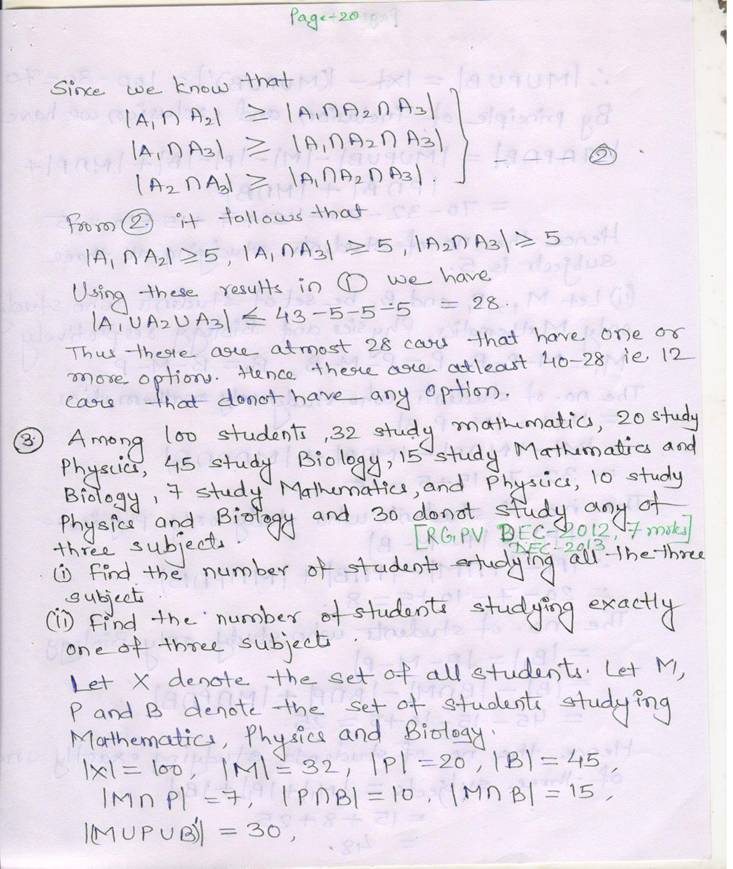 Page-20
Since we know that
|A₁∩A₂| ≥ |A₁∩A₂∩A₃|
|A₁∩A₃| ≥ |A₁∩A₂∩A₃|
|A₂∩A₃| ≥ |A₁∩A₂∩A₃|. ------ ②
From ② it follows that
|A₁∩A₂|≥5, |A₁∩A₃|≥5, |A₂∩A₃|≥5
Using these results in ① we have,
|A₁∪A₂∩A₃| ≤ 43-5-5-5 = 28.
Thus there are atmost 28 cars that have one or
more option. Hence there are atleast 40-28 ie 12
cars that donot have any option.
③ Among 100 students, 32 study mathematics, 20 study
Physics, 45 study Biology, 15 study Mathematics and
Biology, 7 study Mathematics, and Physics, 10 study
Physics and Biology and 30 donot study any of
three subjects. [RGPV DEC-2012, 7 mrks]
DEC-2013
(i) Find the number of students studying all the three
subjects
(ii) Find the number of students studying exactly
one of three subjects
Let X denote the set of all students. Let M,
P and B denote the set of students studying
Mathematics, Physics and Biology.
|X|=100, |M|=32, |P|=20, |B|=45
|M∩P|=7, |P∩B|=10, |M∩B|=15,
|(M∪P∪B)'|=30,